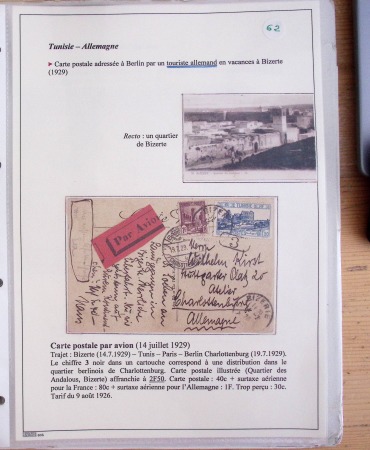 62
Tunisie – Allemagne
► Carte postale adressée à Berlin par un touriste allemand en vacances à Bizerte
(1929)
Recto : un quartier
de Bizerte
Par Avion
Herrn
Wilhelm Hirst
Stuttgarter Platz 20
Atelier
Charlottenburg
Allemagne
Carte postale par avion (14 juillet 1929)
Trajet : Bizerte (14.7.1929) – Tunis – Paris – Berlin Charlottenburg (19.7.1929).
Le chiffre 3 noir dans un cartouche correspond à une distribution dans le
quartier berlinois de Charlottenburg. Carte postale illustrée (Quartier des
Andalous, Bizerte) affranchie à 2F50. Carte postale : 40c + surtaxe aérienne
pour la France : 80c + surtaxe aérienne pour l'Allemagne : 1F. Trop perçu : 30c.
Tarif du 9 août 1926.